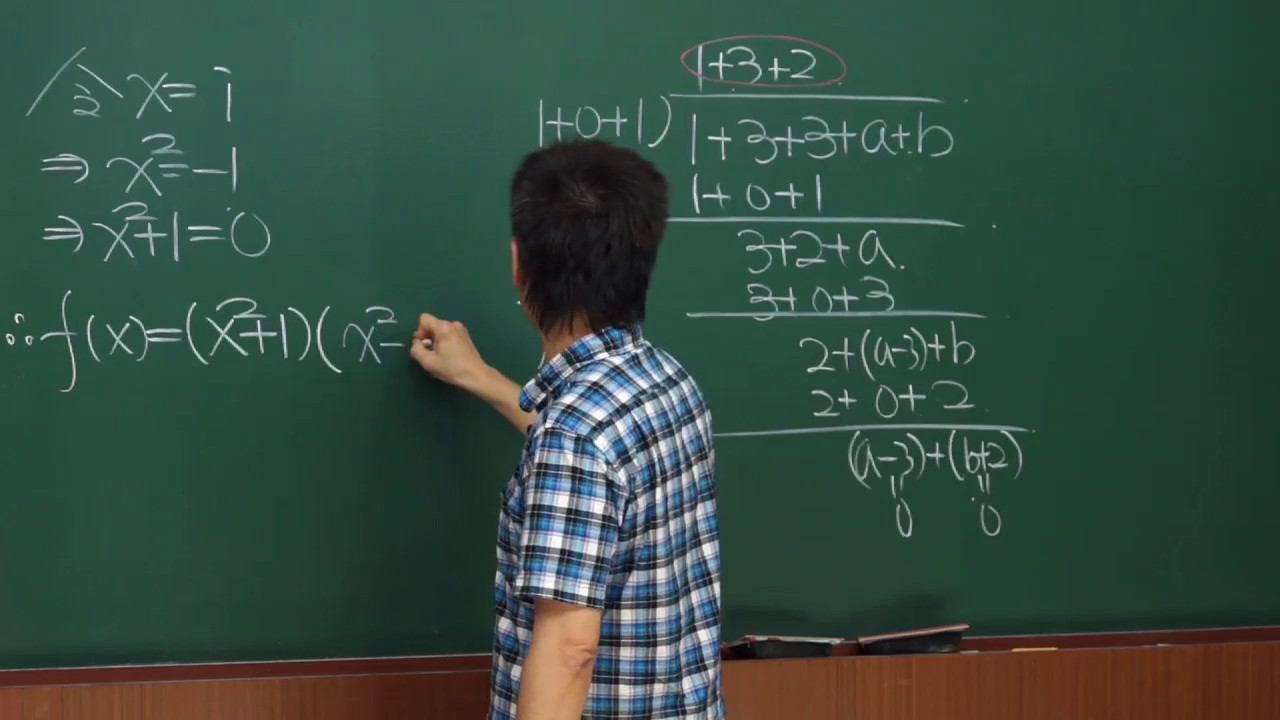 令 x=i
⇒ x²=-1
⇒ x²+1=0
∴ f(x)=(x²+1)(x²-
1+3+2
1+0+1) 1+3+3+a+b
1+0+1
3+2+a
3+0+3
2+(a-3)+b
2+0+2
(a-3)+(b+2)
|| ||
0 0